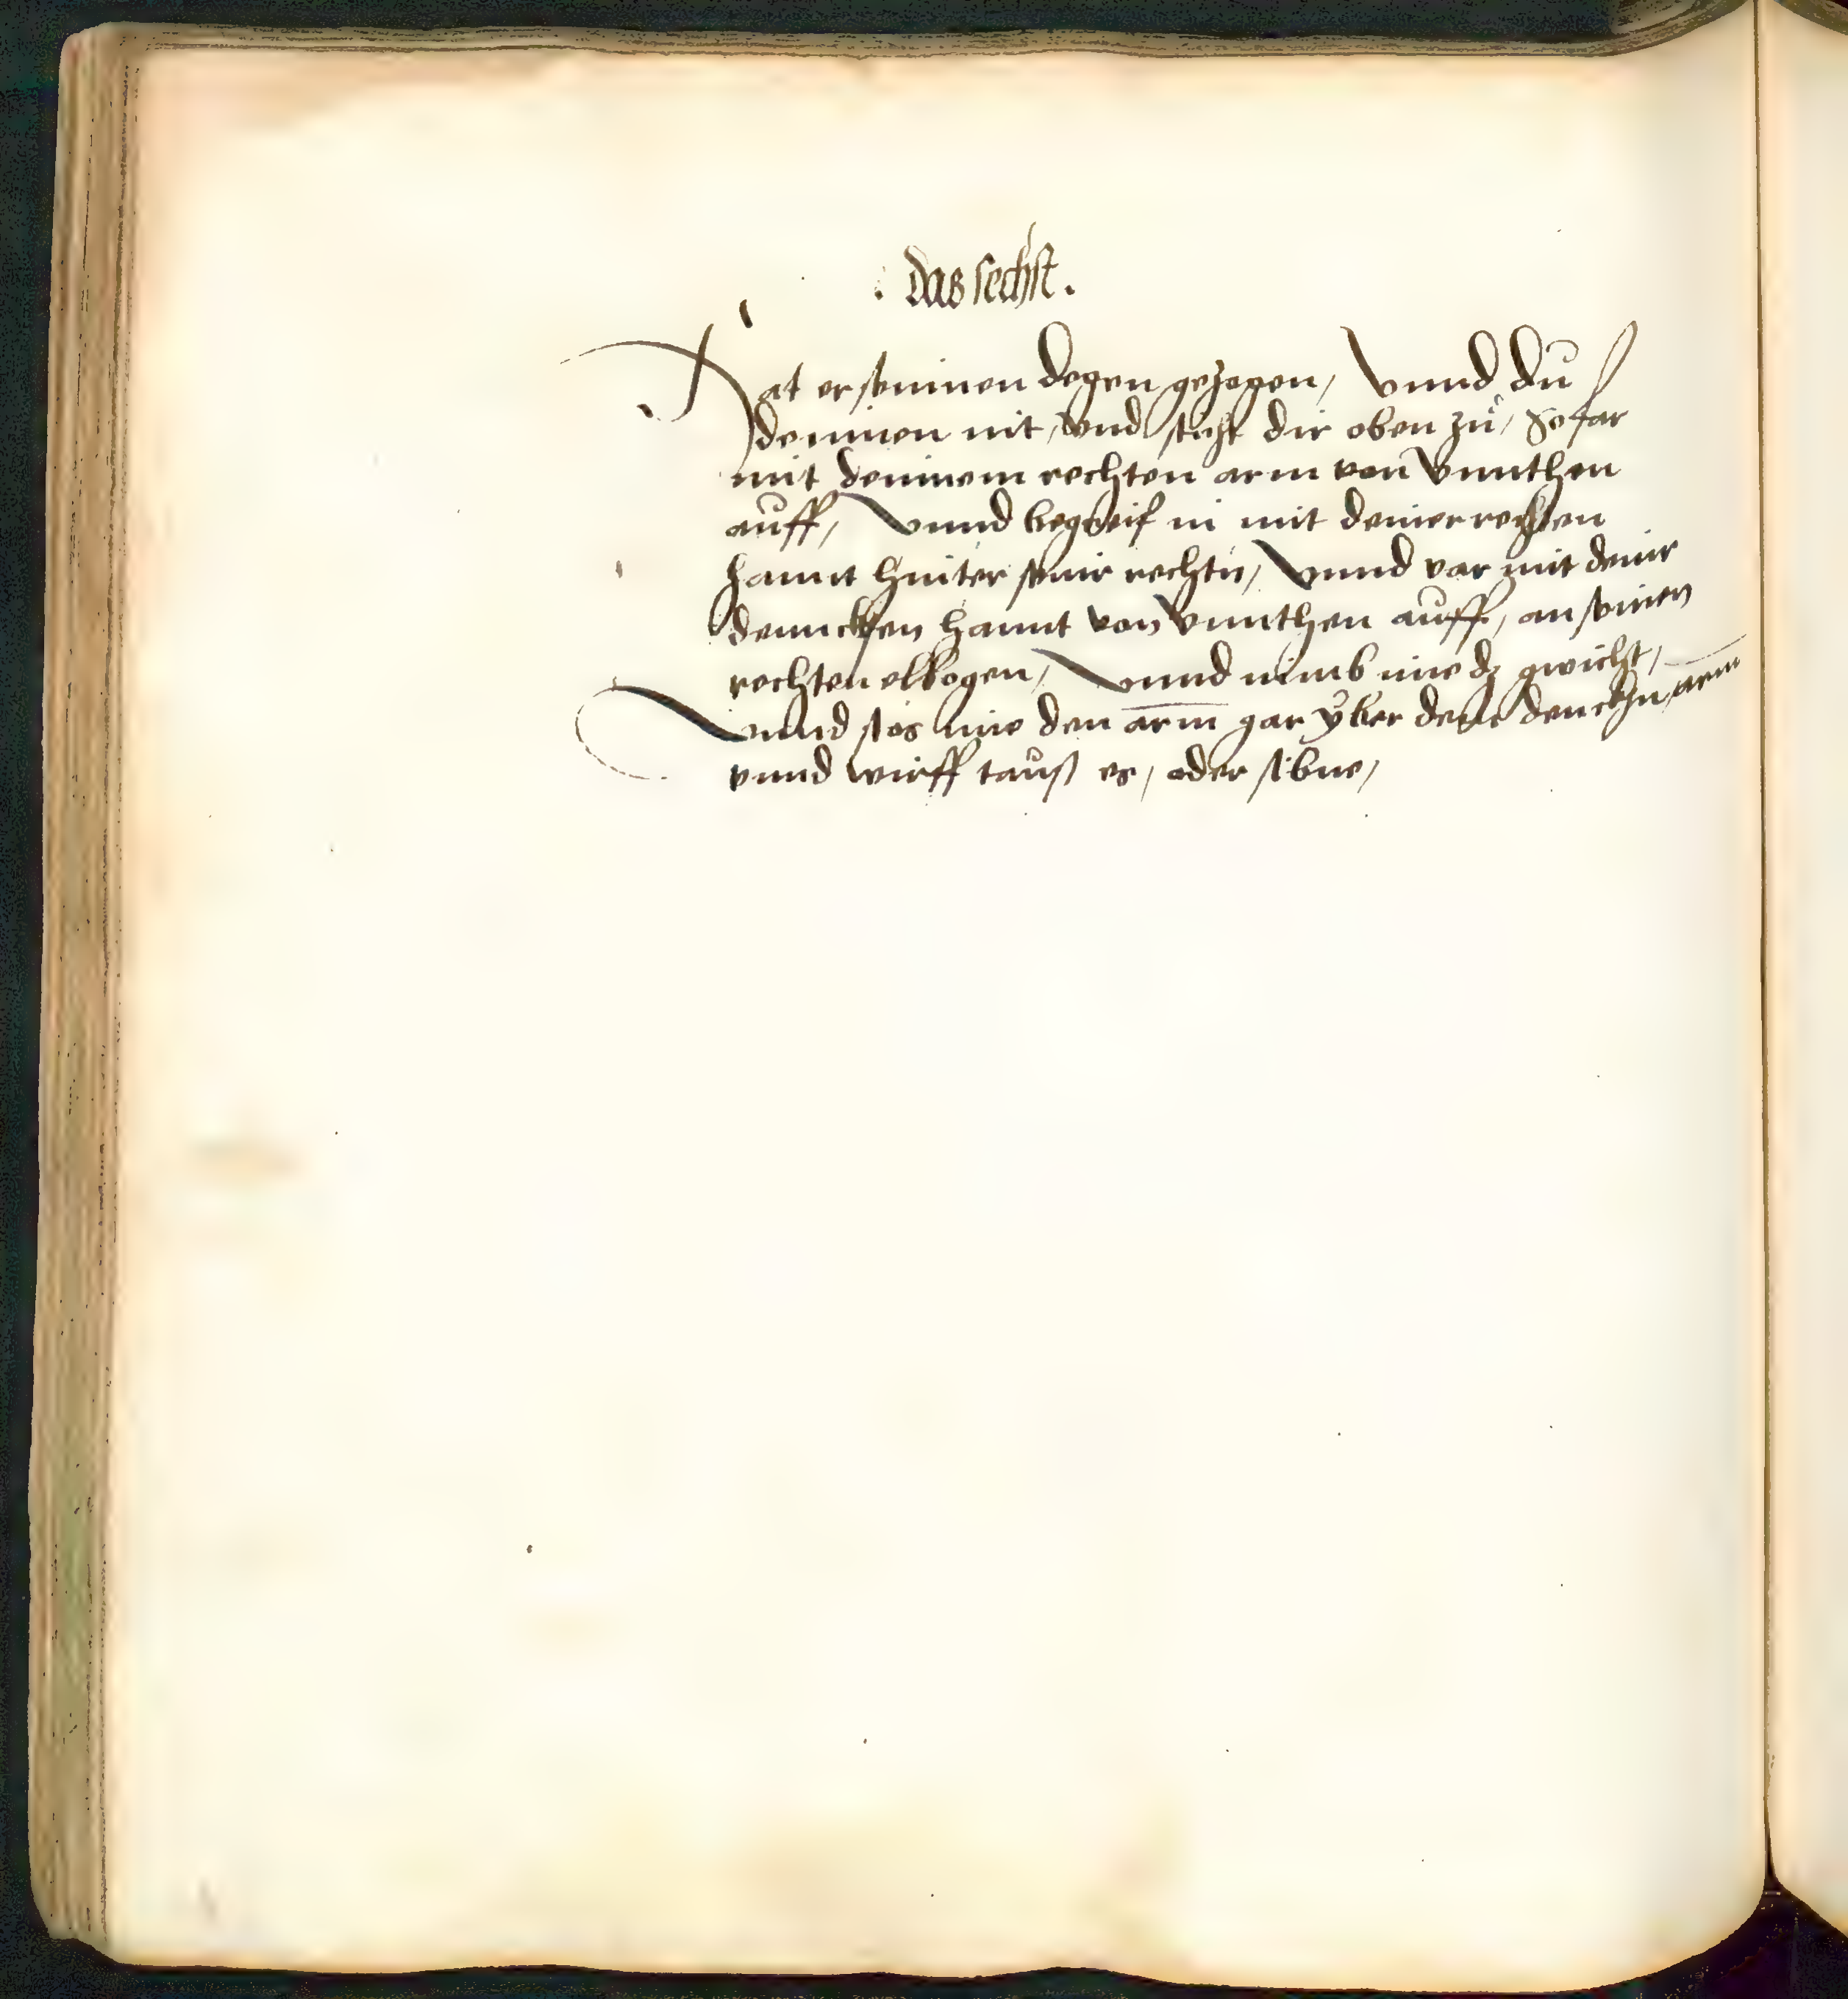 . Das sechst .
Hat er seinnen degen gezogen, Vnnd du
deinnen nit, Vnd sticht dir oben zů, So far
mit deinnem rechten arm von Vnnthen
auff, Vnnd begreif in mit deiner rechten
hannt hinter seinr rechtn, Vnnd var mit deinr
denncken hannt von Vnnthen auff, an seinen
rechten elbogen, Vnnd nimb ime dz gwicht,
Vnnd stos ime den arm gar ÿber dein denckhn arm
vnnd wirff tauß es, oder sibne,